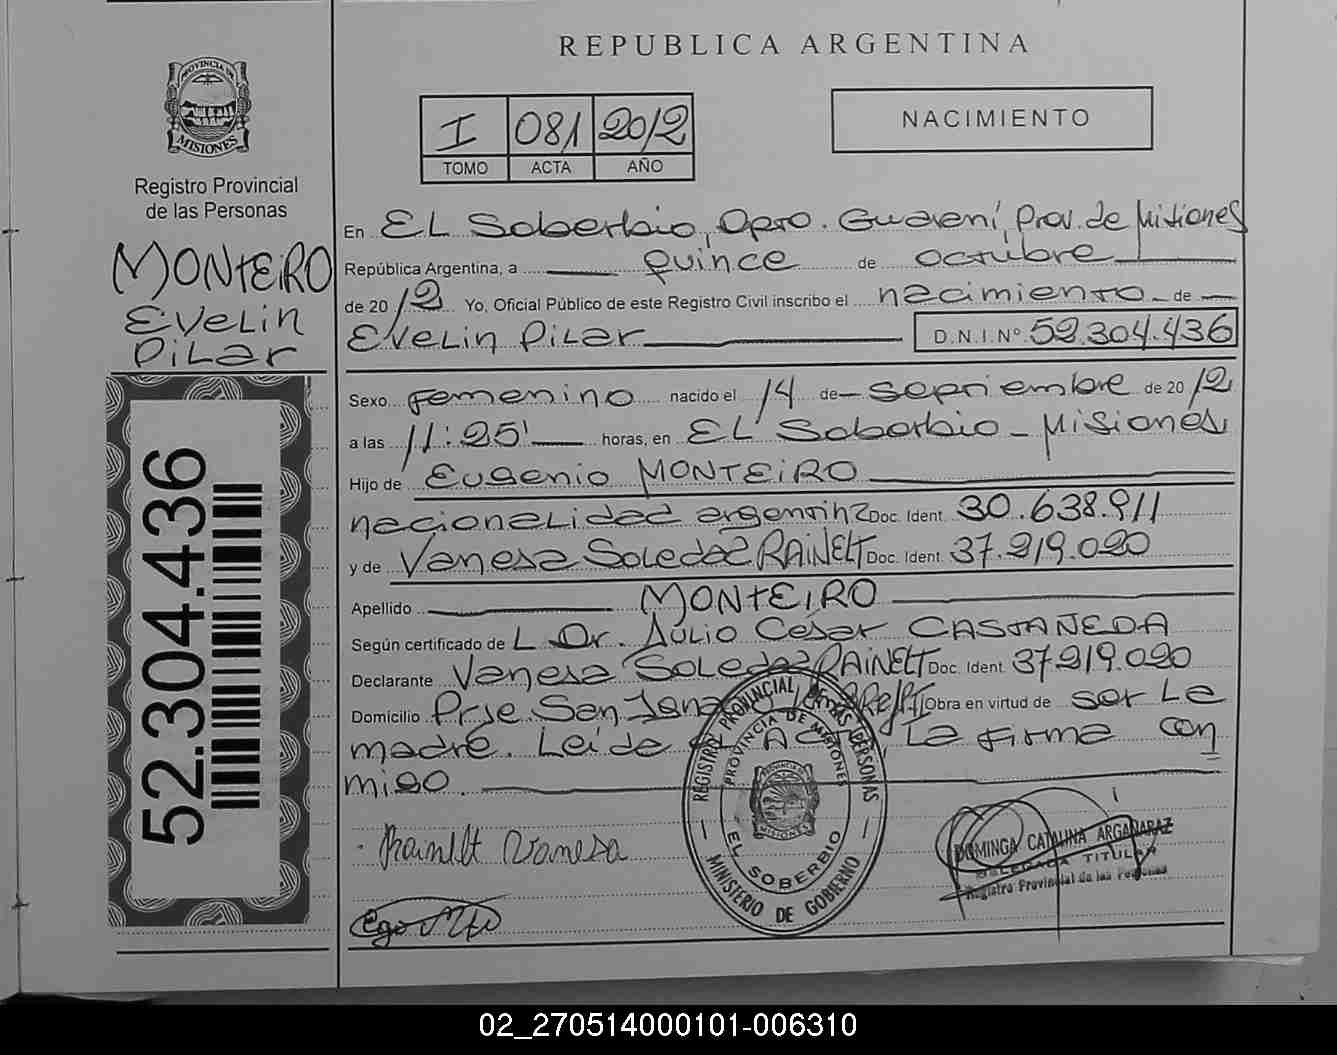 REPUBLICA ARGENTINA
PROVINCIA DE
MISIONES
Registro Provincial
de las Personas
I 081 2012
TOMO ACTA AÑO
NACIMIENTO
MONTEIRO
EVELIN
PILAR
52.304.436
En EL Soberbio, Dpto. Guaraní, Prov. de Misiones
República Argentina, a quince de octubre
de 2012 Yo, Oficial Público de este Registro Civil inscribo el nacimiento de
EVELIN PILAR D.N.I. Nº 52.304.436
Sexo femenino nacido el 14 de septiembre de 2012
a las 11:25' horas, en EL Soberbio - Misiones
Hijo de Eugenio MONTEIRO
nacionalidad argentina Doc. Ident. 30.638.911
y de Vanesa Soledad RAINELT Doc. Ident. 37.219.020
Apellido MONTEIRO
Según certificado de L Dr. Julio César CASTAÑEDA
Declarante Vanesa Soledad RAINELT Doc. Ident. 37.219.020
Domicilio Prje San Obra en virtud de ser La
madre. Leída La firma con
migo.
Rainelt Vanesa
REGISTRO PROVINCIAL DE LAS PERSONAS
PROVINCIA DE MISIONES
EL SOBERBIO
MINISTERIO DE GOBIERNO
DOMINGA CATALINA ARGAÑARAZ
DELEGADA TITULAR
Registro Provincial de las Personas
02_270514000101-006310